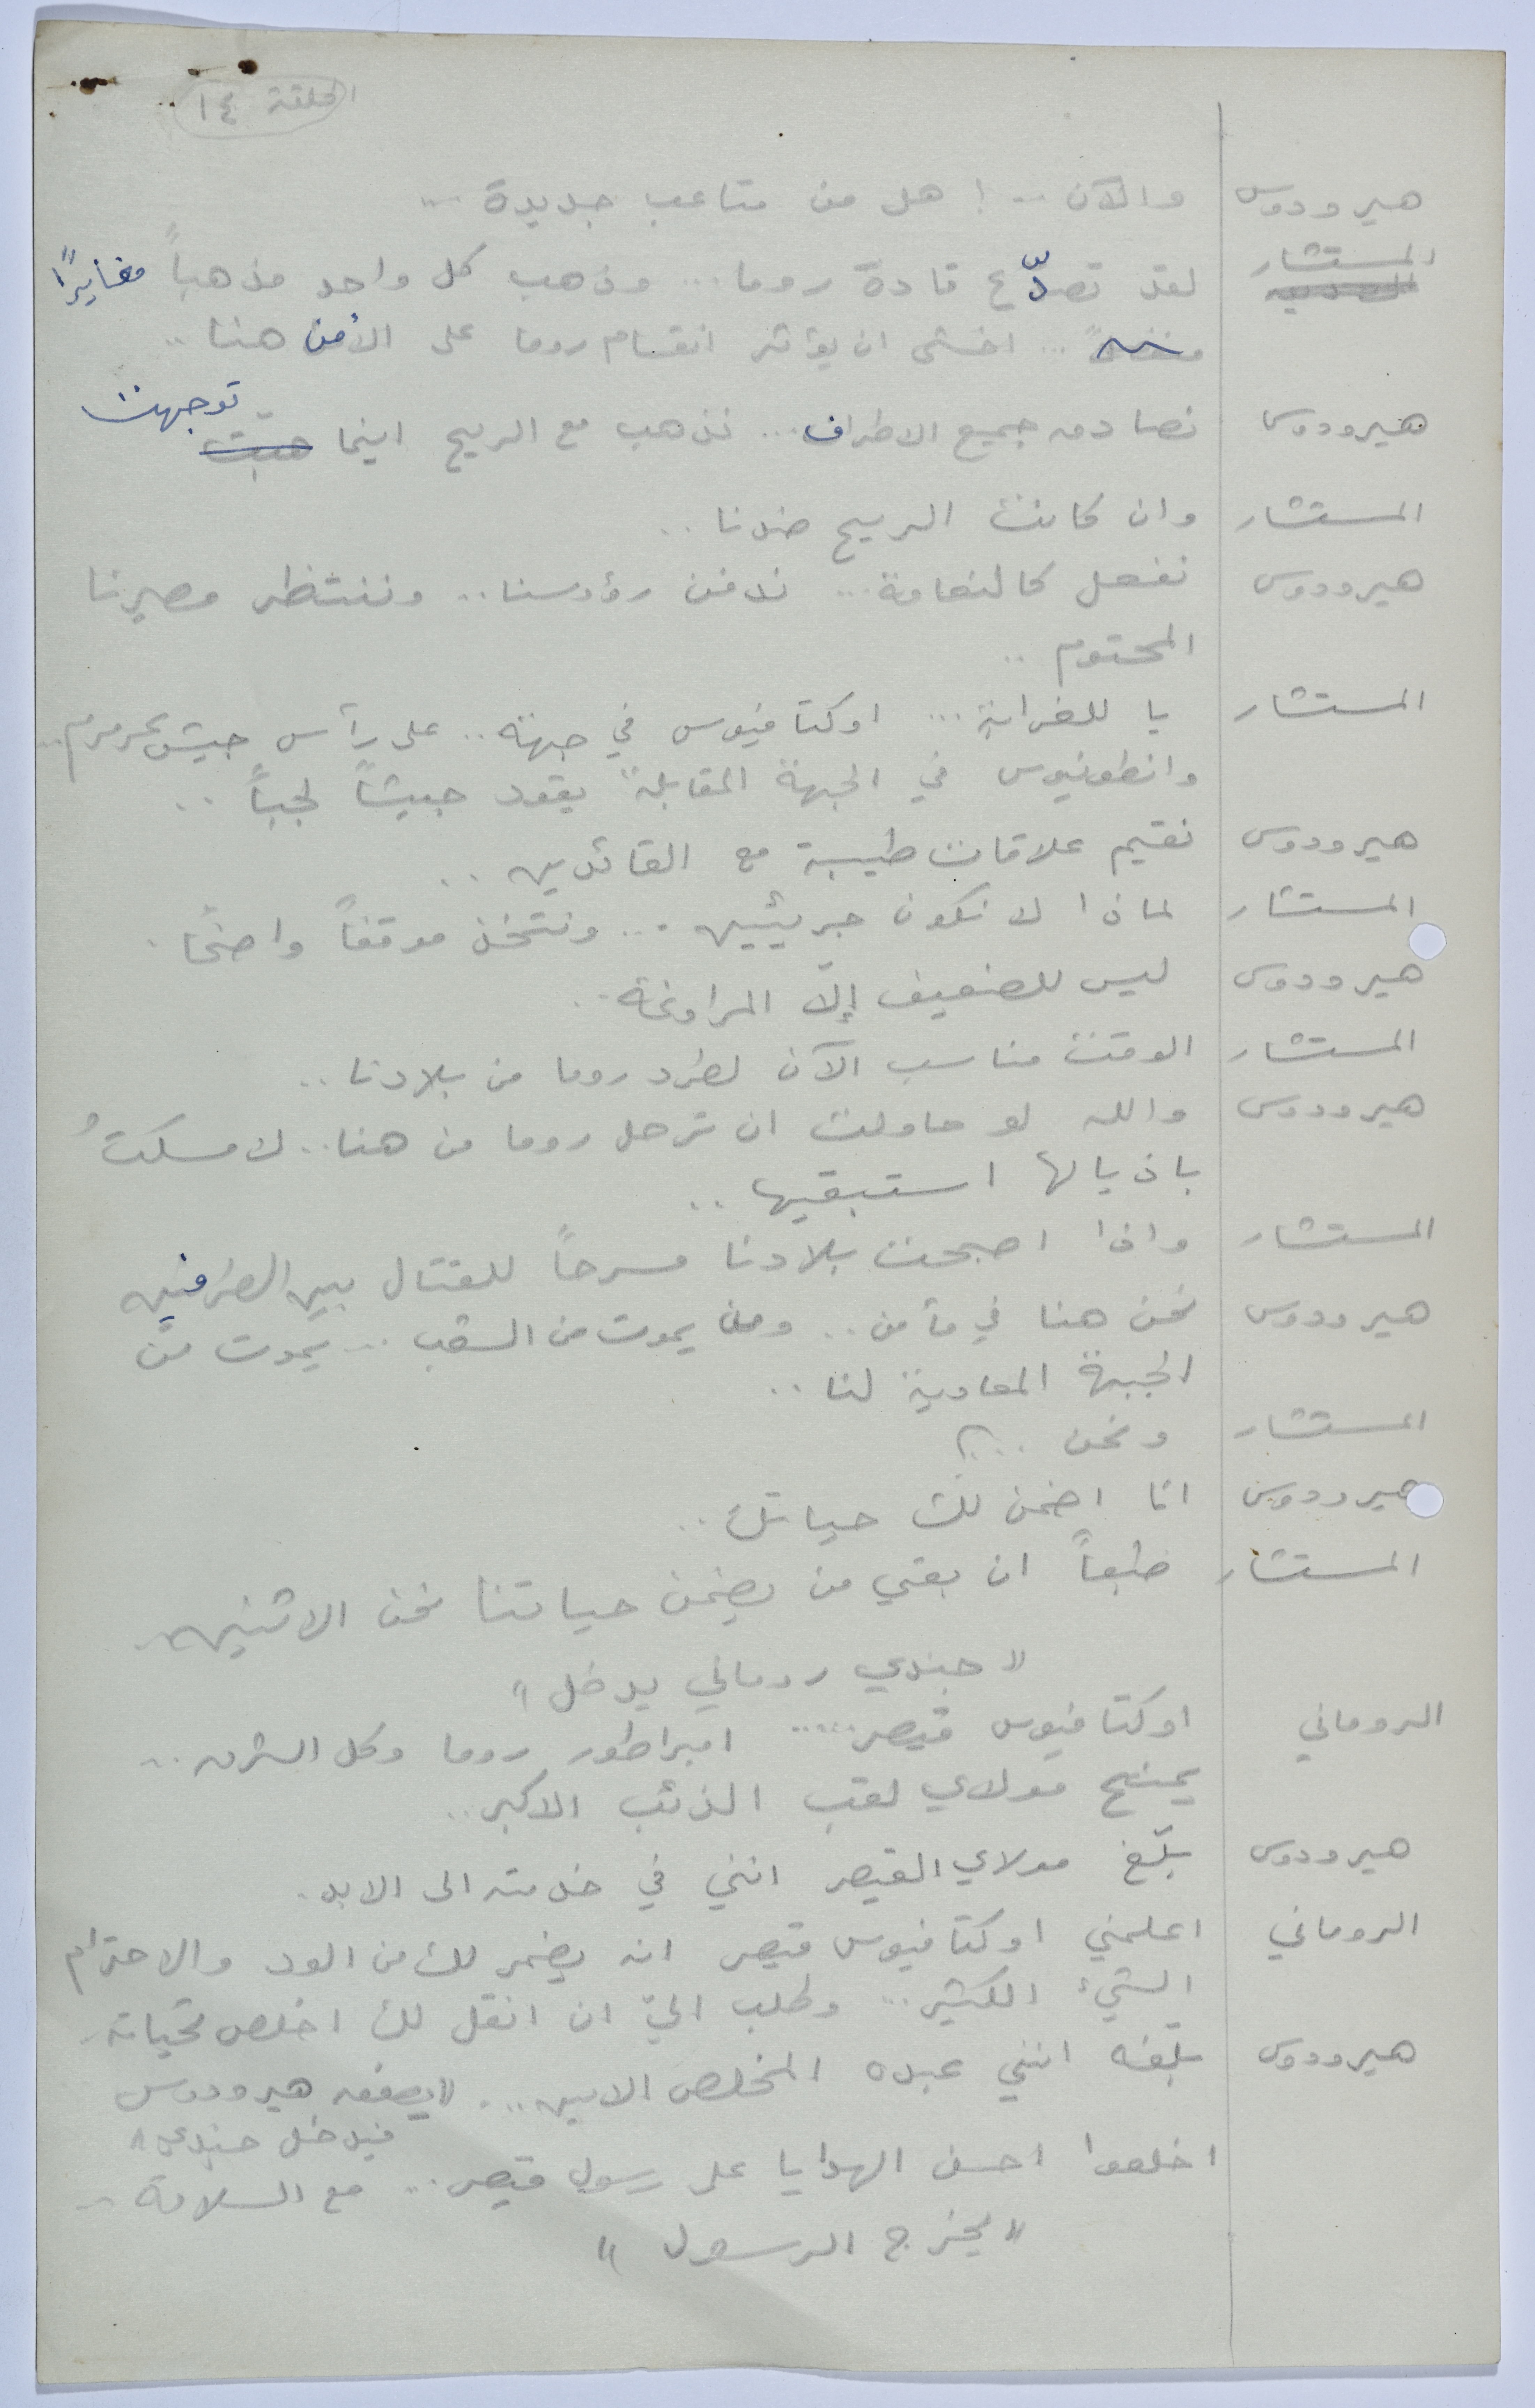 الحلقة ١٤
هيرودوس والآن .. ! هل من متاعب جديدة ..
المستشار لقد تصدّع قادة روما ... وذهب كل واحد مذهباً مغايرًا
... اخشى ان يؤثر انقسام روما على الأمن هنا ..
توجهت
هيرودوس نصادق جميع الاطراف ... نذهب مع الريح اينما هبّت
المستشار وان كانت الريح ضدنا ..
هيرودوس نفعل كالنعامة ... ندفن رؤوسنا .. وننتظر مصيرنا
المحتوم ..
المستشار يا للغرابة ... اوكتافيوس في جبهة .. على رأس جيش عرمرم ..
وانطونيوس في الجبهة المقابلة يقود جيشاً لجباً ..
هيرودوس نقيم علاقات طيبة مع القائدين ..
المستشار لماذا لا نكون جريئين ... ونتخذ موقفاً واضحًا .
هيرودوس ليس للضعيف إلّا المراوغة ..
المستشار الوقت مناسب الآن لطرد روما من بلادنا ..
هيرودوس والله لو حاولت ان ترحل روما من هنا .. لامسكتُ
باذيالها استبقيها ..
المستشار واذا اصبحت بلادنا مسرحاً للقتال بين الطرفين
هيرودوس نحن هنا في مأمن .. ومن يموت من الشعب .. يموت من
الجبهة المعادية لنا ..
المستشار ونحن ..؟
هيرودوس انا اضمن لك حياتك ..
المستشار طبعاً ان بقي من يضمن حياتنا نحن الاثنين ..
" جندي روماني يدخل "
الروماني اوكتافيوس قيصر ..... امبراطور روما وكل الشرق ..
يمنح مولاي لقب الذئب الاكبر ..
هيرودوس بلّغ مولاي القيصر انني في خدمته الى الابد .
الروماني اعلمني اوكتافيوس قيصر انه يضمر لك من الود والاحترام
الشيء الكثير .. وطلب اليّ ان انقل لك اخلص تحياته ..
هيرودوس بلّغه انني عبده المخلص الامين ... " يصفق هيرودوس
فيدخل جندي "
اخلعوا احسن الهدايا على رسول قيصر .. مع السلامة ..
" يخرج الرسول "